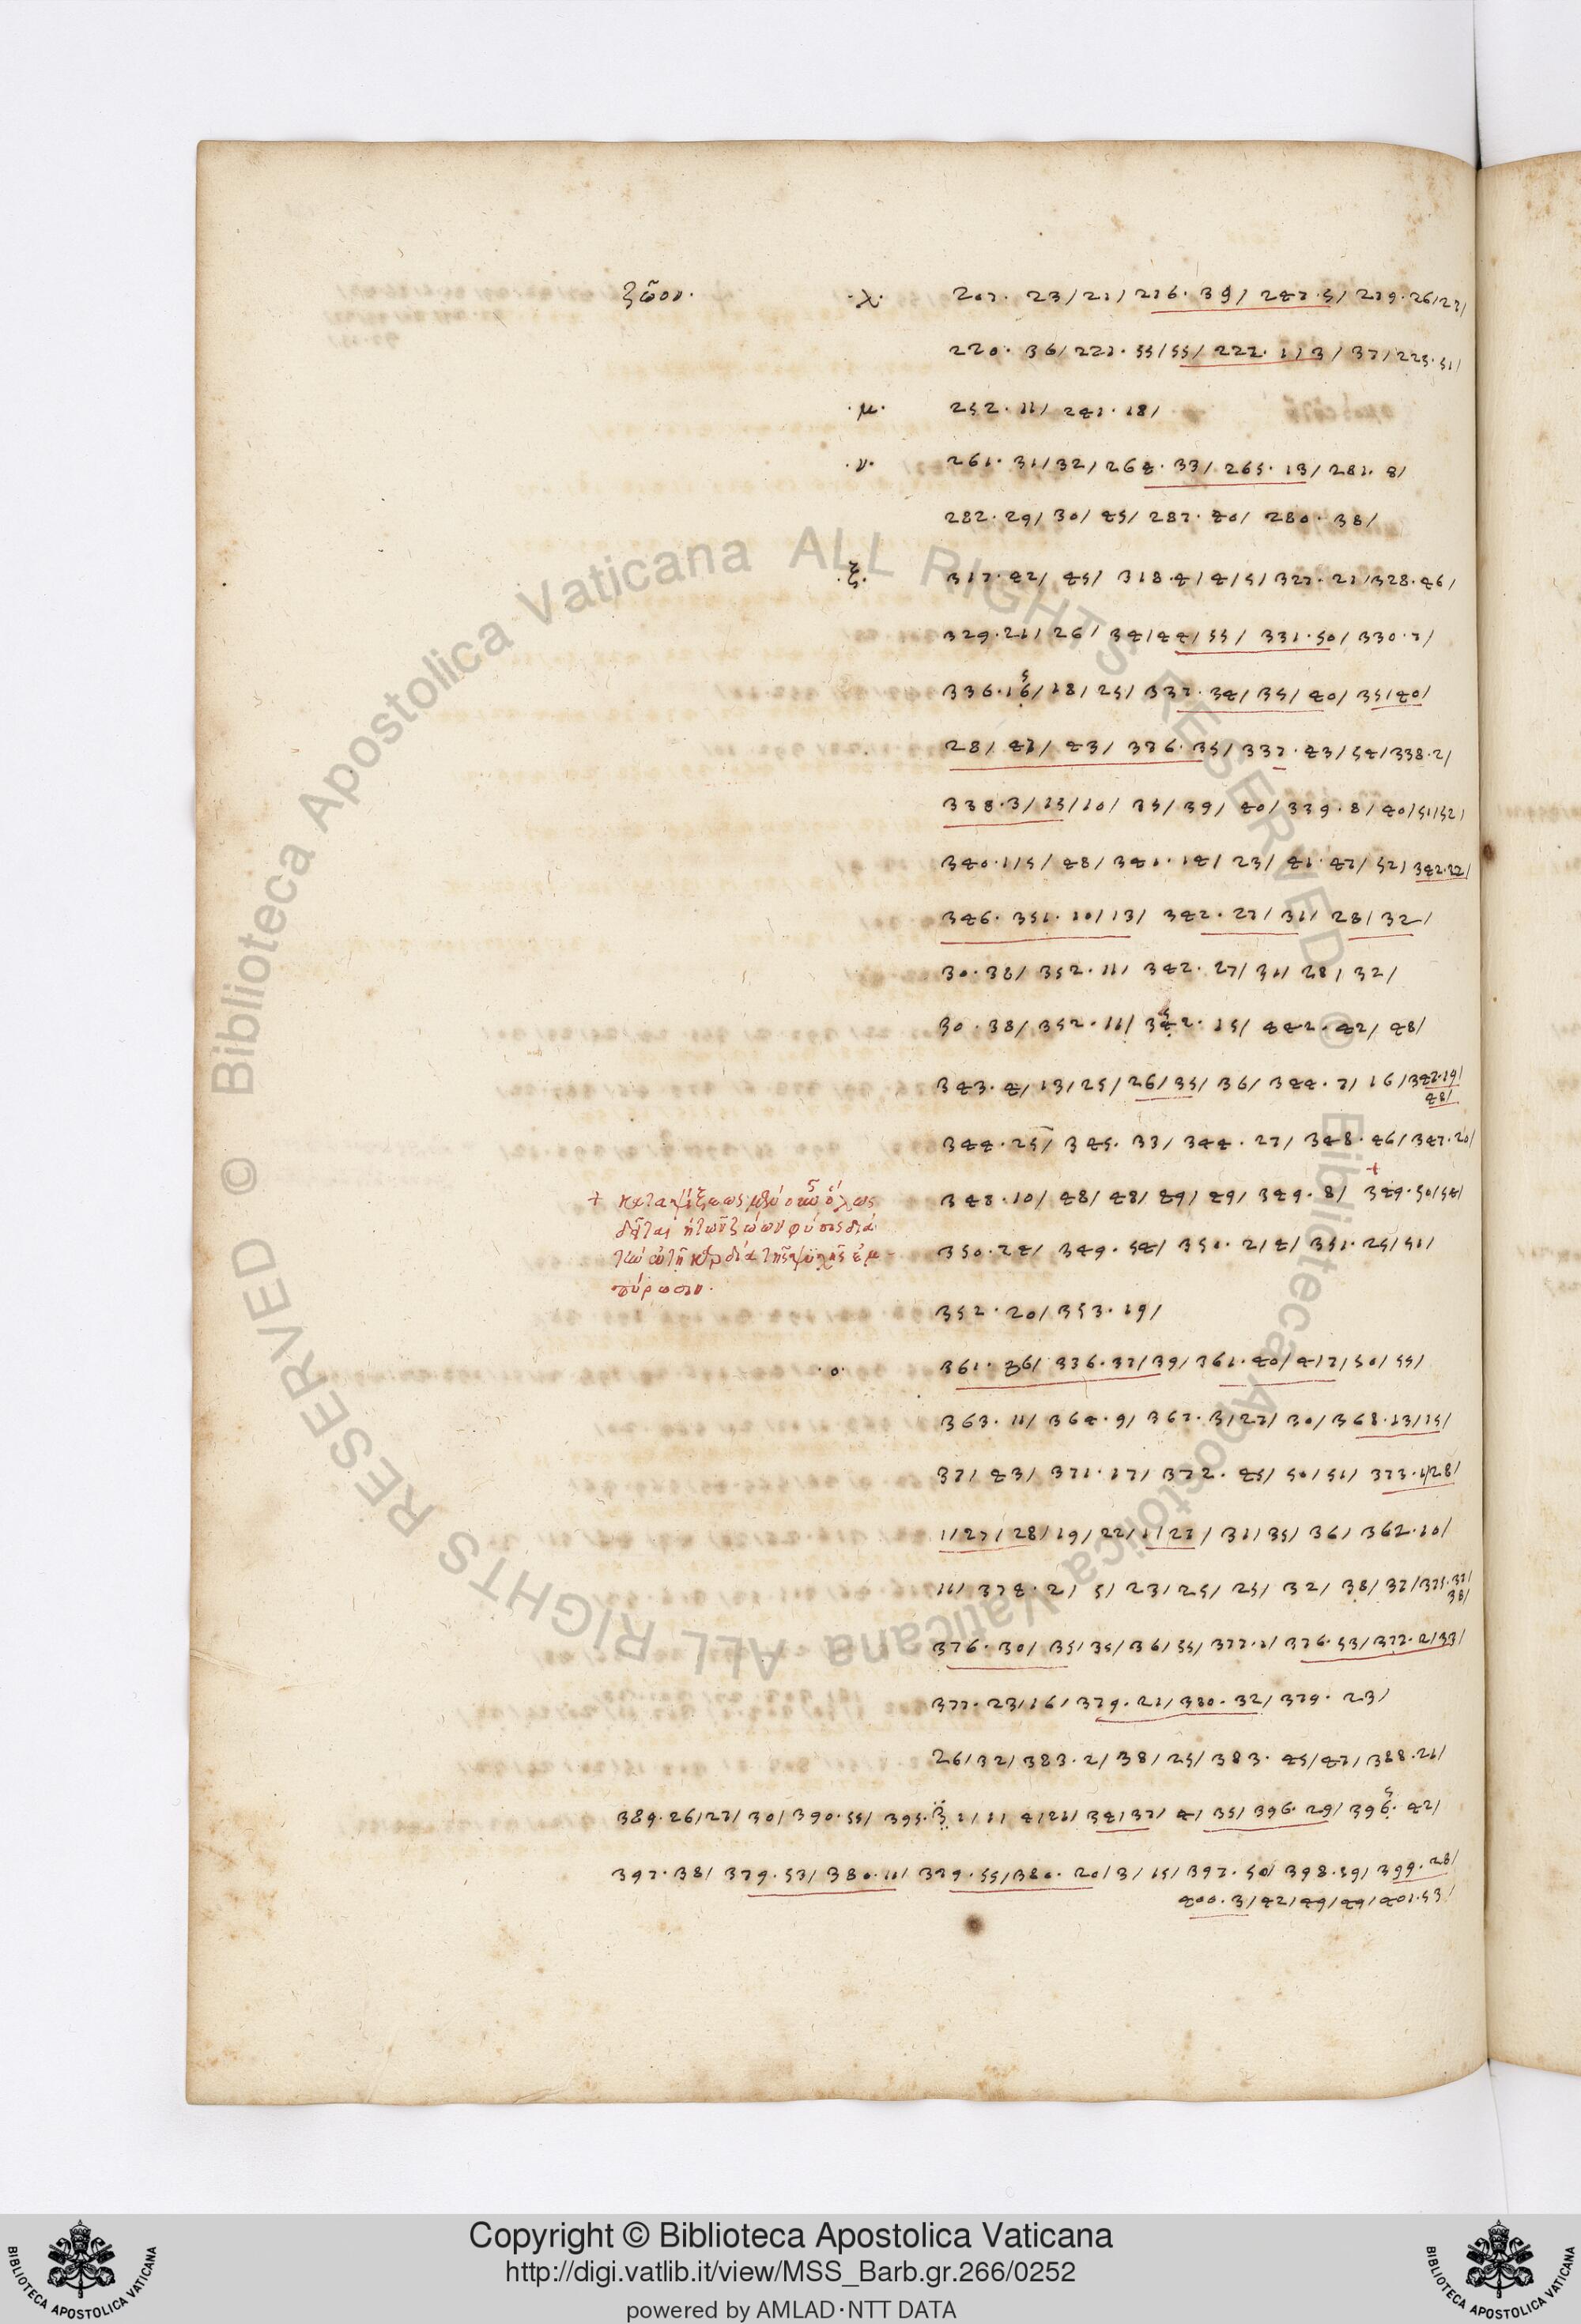 ζῶον. ·λ· 207. 23/21/216. 39/247.5/219.26/27/
220. 36/221.55/55/222.1/3/37/225.51/
·μ· 252.11/241.18/
·ν· 261.31/32/264.33/265.13/281.8/
282.29/30/45/287.40/280.38/
·ξ· 317.42/45/318.4/4/5/327.21/328.46/
329.21/26/34/44/55/331.50/330.7/
336.16/18/25/337.34/35/40/35/40/
28/41/43/376.35/337.43/54/338.2/
338.3/15/10/35/39/40/339.8/40/51/52/
340.1/5/48/341.14/23/41.47/52/342.22/
346.351.10/13/342.27/31/28/32/
30.38/352.11/342.27/31/28/32/
30.38/352.11/342.15/442.42/48/
343.4/13/25/26/35/36/344.7/16/347.19/
48/
344.25/345.33/344.27/348.46/347.20/
348.10/48/48/49/49/349.8/349.50/54/
+ καταψύξεως
δεῖται ἡ τῶν ζώων φύσις διὰ
350.24/349.54/350.2/4/351.25/51/
τὴν ἐν τῇ καρδίᾳ τῆς ψυχῆς ἐμ-
πύρωσιν.
352.20/353.19/
·ο· 361.36/336.37/39/361.40/4/7/50/55/
363.11/364.9/367.3/27/30/368.13/15/
37/43/371.17/372.45/50/51/373.1/28/
1/27/28/19/22/1/27/31/35/36/362.10/
11/374.2/5/23/25/25/32/38/37/375.37/
38/
376.30/35/35/36/55/377.1/376.53/377.2/33/
377.23/16/379.21/380.32/379.23/
26/32/383.2/38/25/383.45/47/388.21/
389.26/27/30/390.55/395.3 1/11/4/21/34/37/4/35/396.29/396.42/
397.38/379.53/380.11/379.55/380.20/3/15/397.50/398.19/399.28/
400.3/42/49/49/401.53/
Copyright © Biblioteca Apostolica Vaticana
http://digi.vatlib.it/view/MSS_Barb.gr.266/0252
powered by AMLAD·NTT DATA